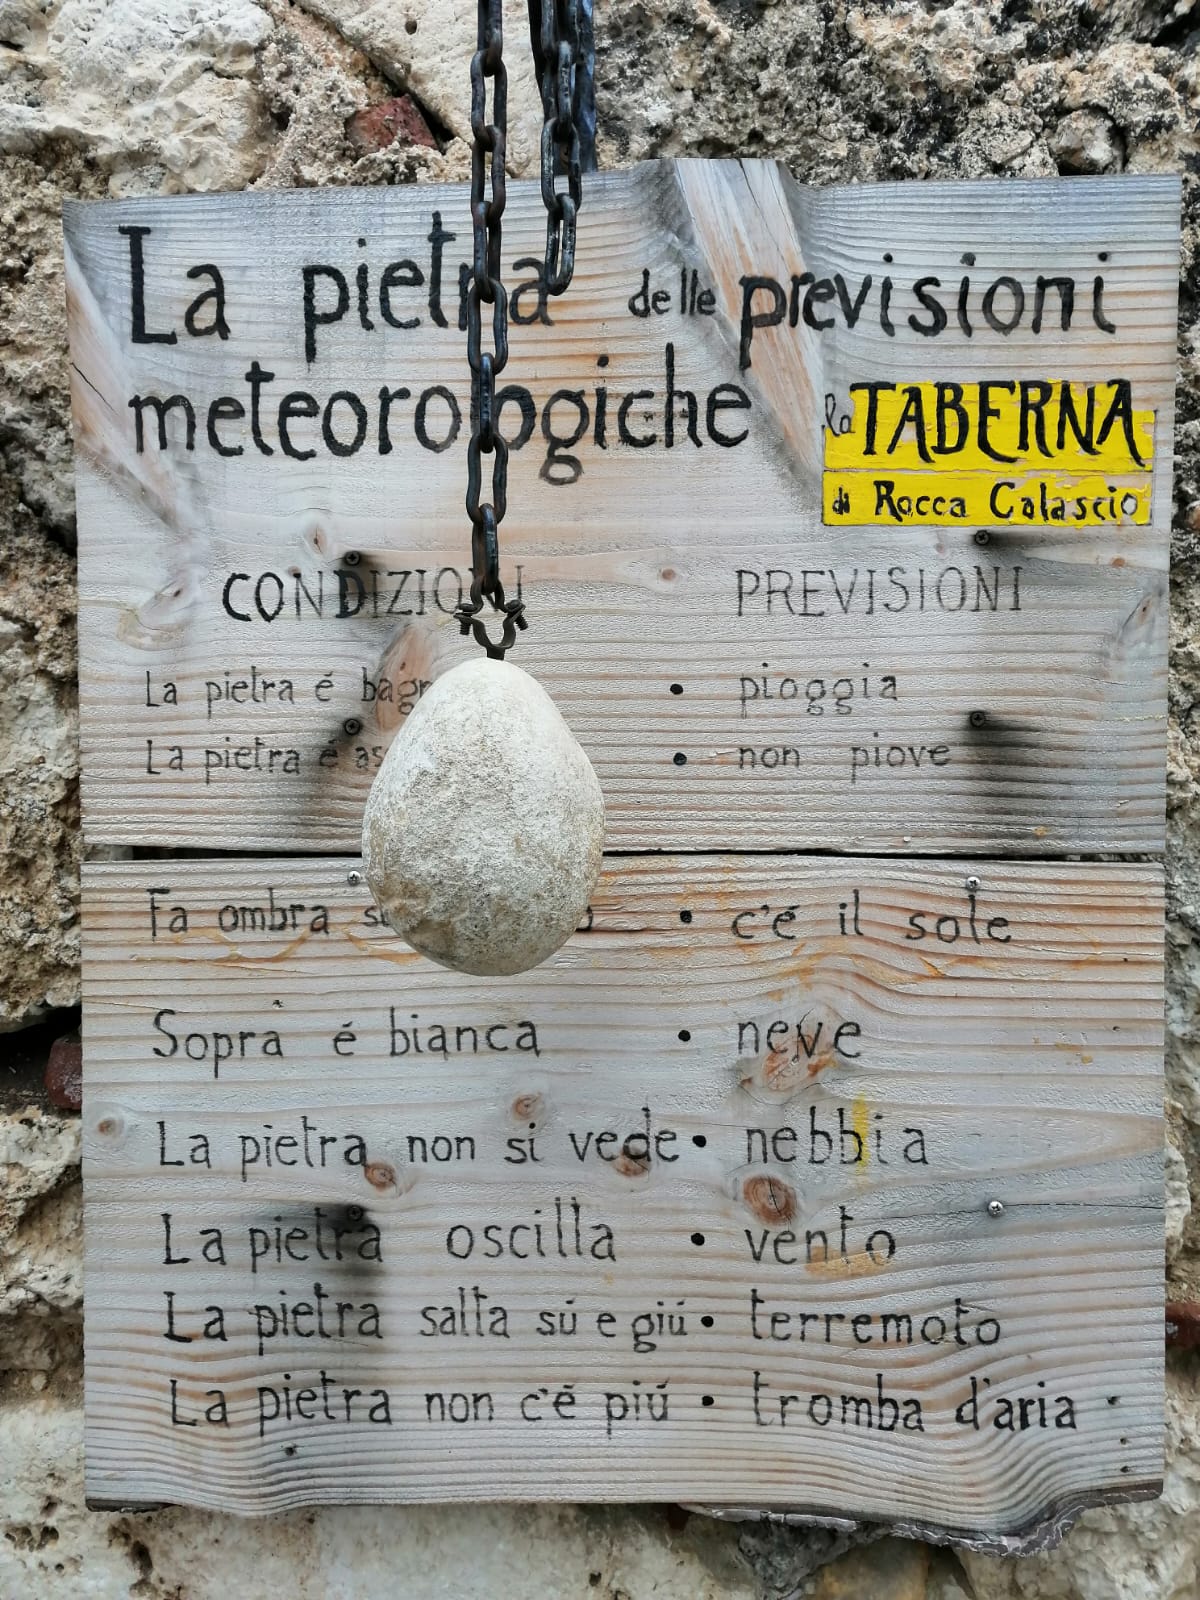 La pietra delle previsioni
meteorologiche
la TABERNA
di Rocca Calascio
CONDIZIONI PREVISIONI
La pietra é • pioggia
La pietra é • non piove
Fa ombra • c'é il sole
Sopra é bianca • neve
La pietra non si vede • nebbia
La pietra oscilla • vento
La pietra salta sú e giú • terremoto
La pietra non c'é piú • tromba d'aria